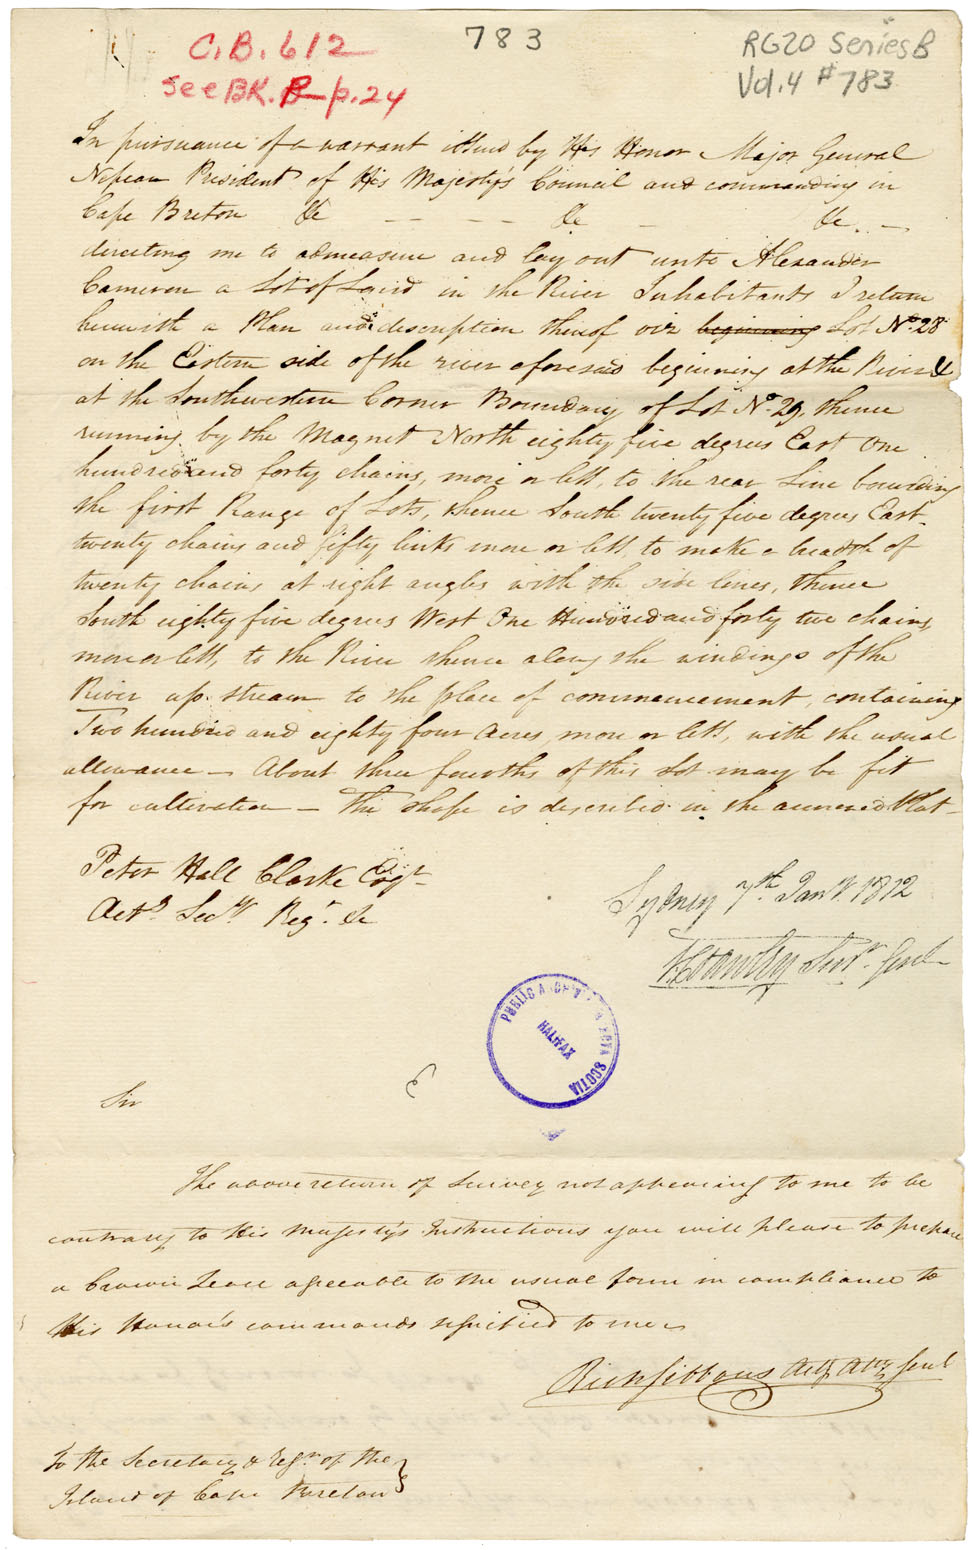 C.B. 612
783
RG20 Series B
See BK. B p. 24
Vol. 4 #783
In pursuance of a warrant issued by His Honor Major General
Nepean President of His Majesty's Council and commanding in
Cape Breton &c - - - - &c - &c. -
directing me to admeasure and lay out unto Alexander
Cameron a Lot of Land in the River Inhabitants I return
herewith a Plan and description thereof viz beginning Lot No. 28
on the Eastern side of the river aforesaid beginning at the River &
at the Southwestern Corner Boundary of Lot No. 29, thence
running by the Magnet North eighty five degrees East One
hundred and forty chains, more or less, to the rear Line bounding
the first Range of Lots, thence South twenty five degrees East
twenty chains and fifty links more or less, to make a breadth of
twenty chains at right angles with the side lines, thence
South eighty five degrees West One Hundred and forty two chains,
more or less, to the River thence along the windings of the
River up stream to the place of commencement, containing
Two hundred and eighty four Acres, more or less, with the usual
allowance — About three fourths of this Lot may be fit
for cultivation — The shape is described in the annexed Plat —
Peter Hall Clarke Esqr.
Actg. Secy. Regr. &c
Sydney 7th. Jany. 1812
Stanley Survr. Genl.
PUBLIC ARCHIVES NOVA SCOTIA
HALIFAX
Sir
The above return of Survey not appearing to me to be
contrary to His Majesty's Instructions you will please to prepare
a Crown Lease agreeable to the usual form in compliance to
His Honor's commands signified to me
Rich Gibbons Actg Atty Genl
To the Secretary & Regr. of the
Island of Cape Breton